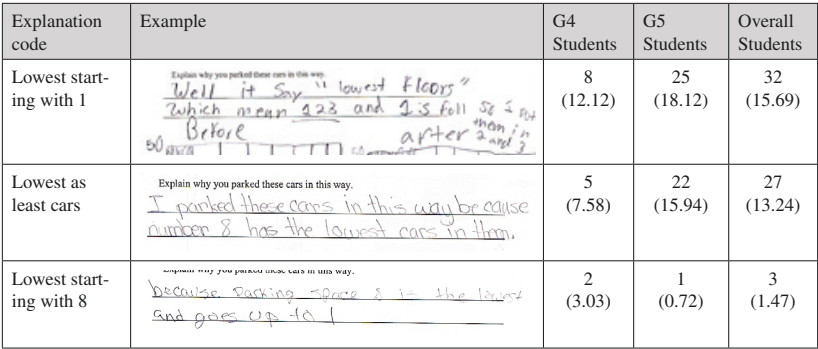 Explanation code
Example
G4 Students
G5 Students
Overall Students
Lowest start-
ing with 1
Explain why you parked these cars in this way.
Well it Say "lowest Floors"
Which mean 123 and 1 is full So I Put
them in
2 and 3
Before
after
50
8
(12.12)
25
(18.12)
32
(15.69)
Lowest as
least cars
Explain why you parked these cars in this way.
I parked these cars in this way because
number 8 has the lowest cars in them.
5
(7.58)
22
(15.94)
27
(13.24)
Lowest start-
ing with 8
Explain why you parked these cars in this way.
because Parking space 8 is the lowest
and goes up to 1
2
(3.03)
1
(0.72)
3
(1.47)